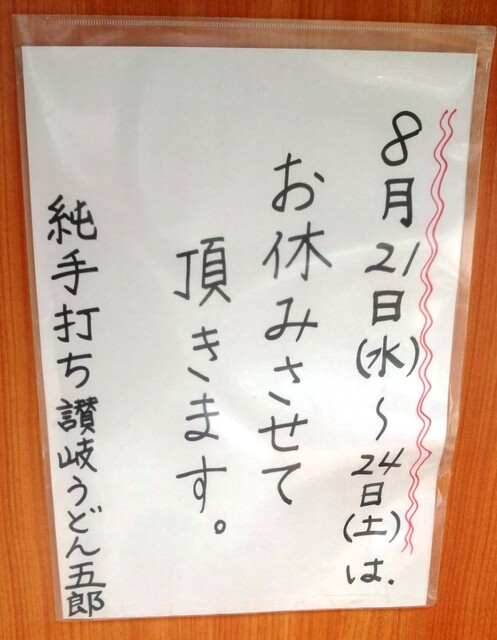 8月21日(水)～24日(土)は.
お休みさせて
頂きます。
純手打ち讃岐うどん五郎